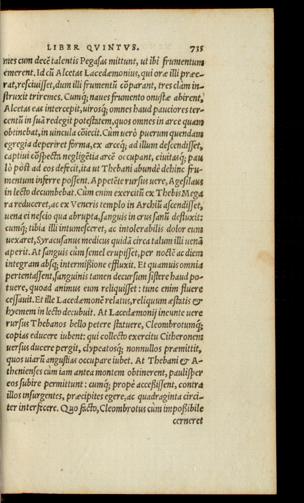 LIBER QVINTVS. 735
mes cum decē talentis Pegasas mittunt, ut ibi frumentum
emerent. Id cū Alcetas Lacedæmonius, qui oræ illi præe-
rat, resciuisset, dum illi frumentū cōparant, tres clam in-
struxit triremes. Cumq́; naues frumento onustæ abirent,
Alcetas eas intercepit, uirosq́; omnes haud pauciores ter-
centū in suā redegit potestatem, quos omnes in arce quam
obtinebat, in uincula cōiecit. Cum uerò puerum quendam
egregia deperiret forma, ex arceq́; ad illum descendisset,
captiui cōspecta negligētia arcē occupant, ciuitasq́; pau
lò pōst ad eos defecit, ita ut Thebani abundè dehinc fru-
mentum inferre possent. Appetēte rursus uere, Agesilaus
in lecto decumbebat. Cùm enim exercitū ex Thebis Mega
ra reduceret, ac ex Veneris templo in Archiuū ascendisset,
uena ei nescio qua abrupta, sanguis in crus sanū defluxit:
cumq́; tibia illi intumesceret, ac intolerabilis dolor eum
uexaret, Syracusanus medicus quidā circa talum illi uenā
aperit. At sanguis cùm semel erupisset, per noctē ac diem
integram absq́; intermißione effluxit. Et quamuis omnia
pertentassent, sanguinis tamen decursum sistere haud po-
tuere, quoad animus eum reliquisset: tunc enim fluere
cessauit. Et ille Lacedæmonē relatus, reliquum æstatis &
hyemem in lecto decubuit. At Lacedæmonij ineunte uere
rursus Thebanos bello petere statuere, Cleombrotumq́;
copias educere iubent: qui collecto exercitu Citheronem
uersus ducere pergit, clypeatosq́; nonnullos præmittit,
quos uiarū angustias occupare iubet. At Thebani & A-
thenienses cùm iam antea montem obtinerent, paulisper
eos subire permittunt: cumq́; propè accessissent, contra
illos insurgentes, præcipites egere, ac quadraginta circi-
ter interfecere. Quo facto, Cleombrotus cùm impoßibile
cerneret